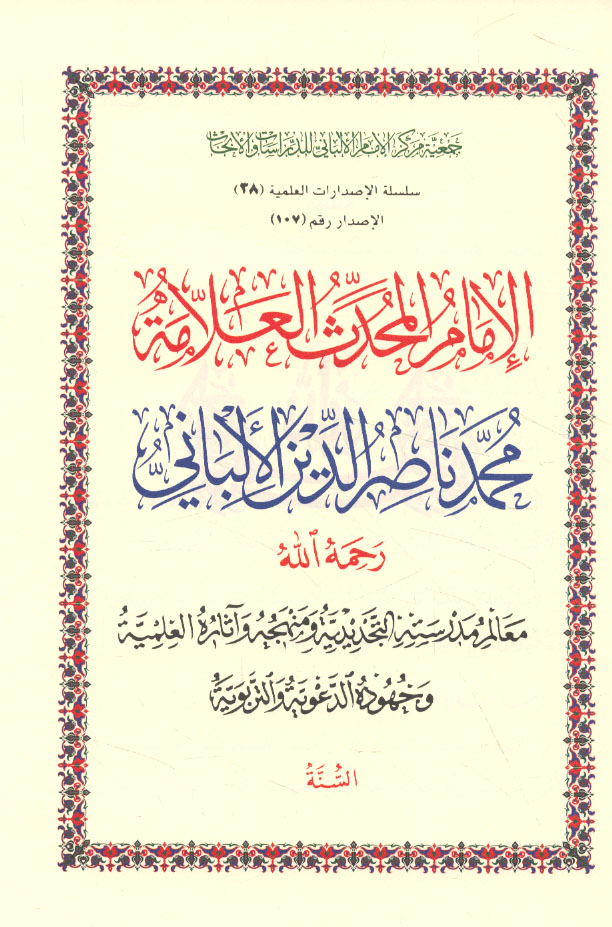 جَمْعِيَّة مَرْكَز الإِمَام الألبَاني للدِّرَاسَات وَالأبحَاث
سلسلة الإصدارات العلمية (٣٨)
الإصدار رقم (١٠٧)
الإِمَامُ المُحَدِّثُ العَلَّامَةُ
مُحَمَّد نَاصِرُ الدِّين الأَلْبَانِيُّ
رَحِمَهُ ٱللهُ
مَعَالِمُ مَدْرَسَتِهِ التَّجْدِيدِيَّةُ وَمَنْهَجُهُ وَآثَارُهُ العِلْمِيَّةُ
وَجُهُودُهُ ٱلدَّعَوِيَّةُ وَٱلتَّرْبَوِيَّةُ
السُّنَّةُ